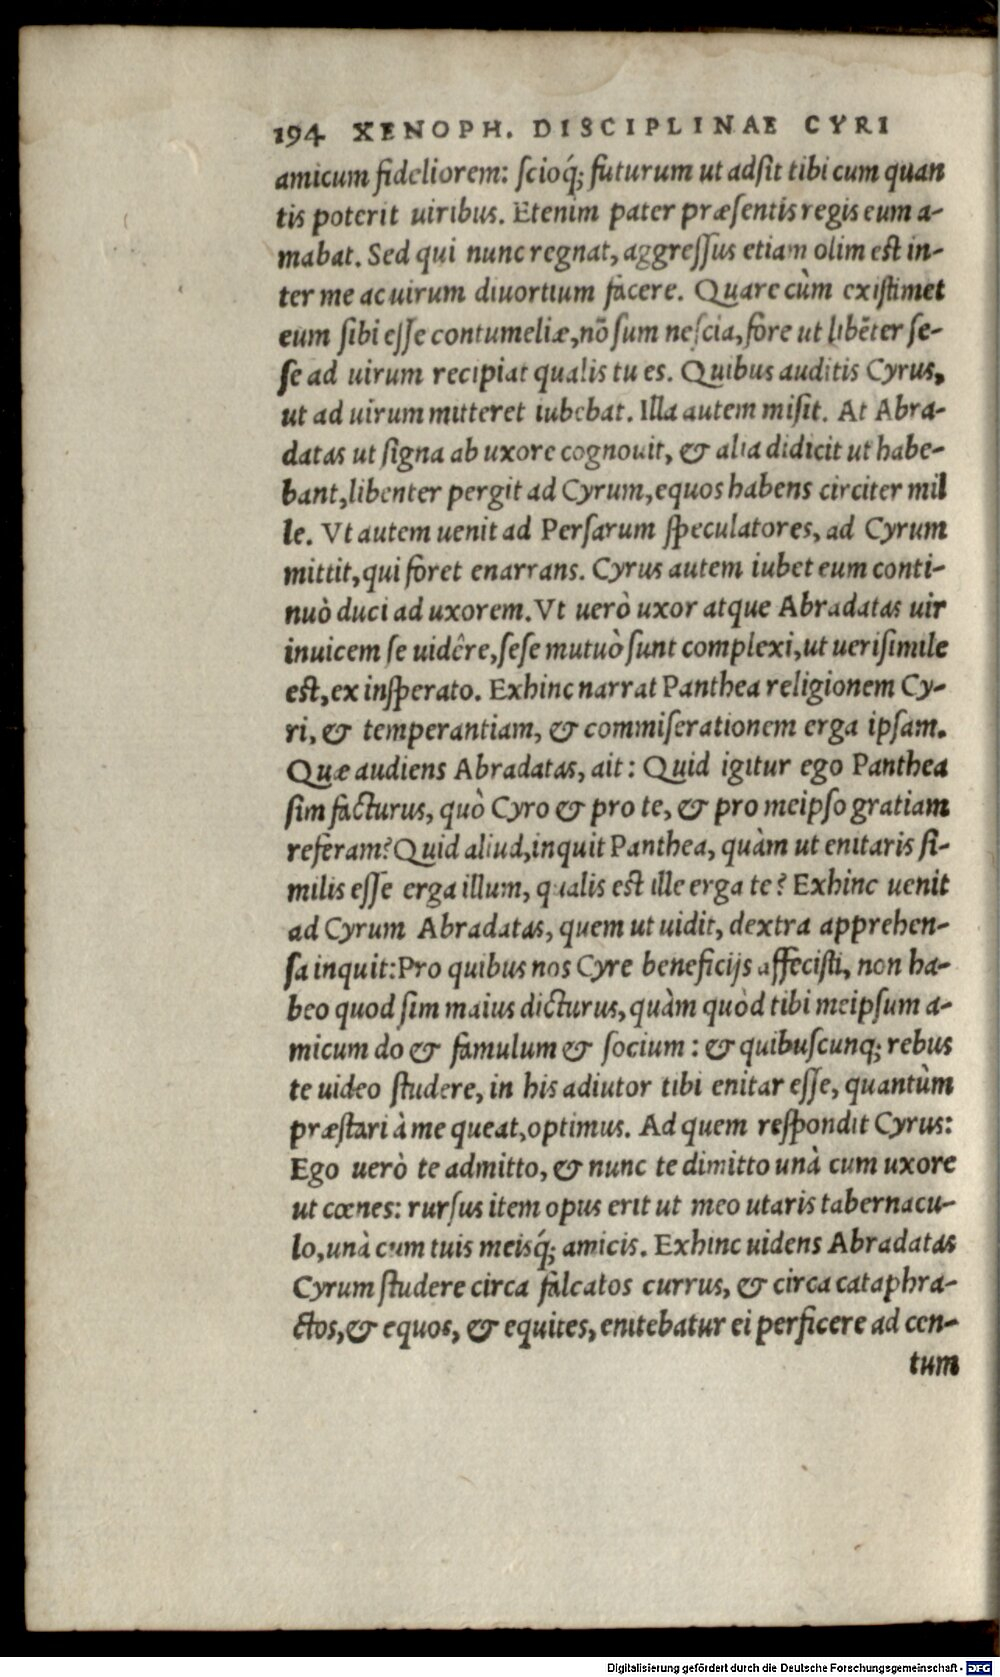 194 XENOPH. DISCIPLINAE CYRI
amicum fideliorem: scioq́; futurum ut adsit tibi cum quan
tis poterit uiribus. Etenim pater præsentis regis eum a-
mabat. Sed qui nunc regnat, aggressus etiam olim est in-
ter me ac uirum diuortium facere. Quare cùm existimet
eum sibi esse contumeliæ, nō sum nescia, fore ut libēter se-
se ad uirum recipiat qualis tu es. Quibus auditis Cyrus,
ut ad uirum mitteret iubebat. Illa autem misit. At Abra-
datas ut signa ab uxore cognouit, & alia didicit ut habe-
bant, libenter pergit ad Cyrum, equos habens circiter mil
le. Vt autem uenit ad Persarum speculatores, ad Cyrum
mittit, qui foret enarrans. Cyrus autem iubet eum conti-
nuò duci ad uxorem. Vt uerò uxor atque Abradatas uir
inuicem se uidêre, sese mutuò sunt complexi, ut uerisimile
est, ex insperato. Exhinc narrat Panthea religionem Cy-
ri, & temperantiam, & commiserationem erga ipsam.
Quæ audiens Abradatas, ait: Quid igitur ego Panthea
sim facturus, quò Cyro & pro te, & pro meipso gratiam
referam? Quid aliud, inquit Panthea, quàm ut enitaris si-
milis esse erga illum, qualis est ille erga te? Exhinc uenit
ad Cyrum Abradatas, quem ut uidit, dextra apprehen-
sa inquit: Pro quibus nos Cyre beneficijs affecisti, non ha-
beo quod sim maius dicturus, quàm quòd tibi meipsum a-
micum do & famulum & socium: & quibuscunq; rebus
te uideo studere, in his adiutor tibi enitar esse, quantùm
præstari à me queat, optimus. Ad quem respondit Cyrus:
Ego uerò te admitto, & nunc te dimitto unà cum uxore
ut cœnes: rursus item opus erit ut meo utaris tabernacu-
lo, unà cum tuis meisq́; amicis. Exhinc uidens Abradatas
Cyrum studere circa falcatos currus, & circa cataphra-
ctos, & equos, & equites, enitebatur ei perficere ad cen-
tum
Digitalisierung gefördert durch die Deutsche Forschungsgemeinschaft - DFG